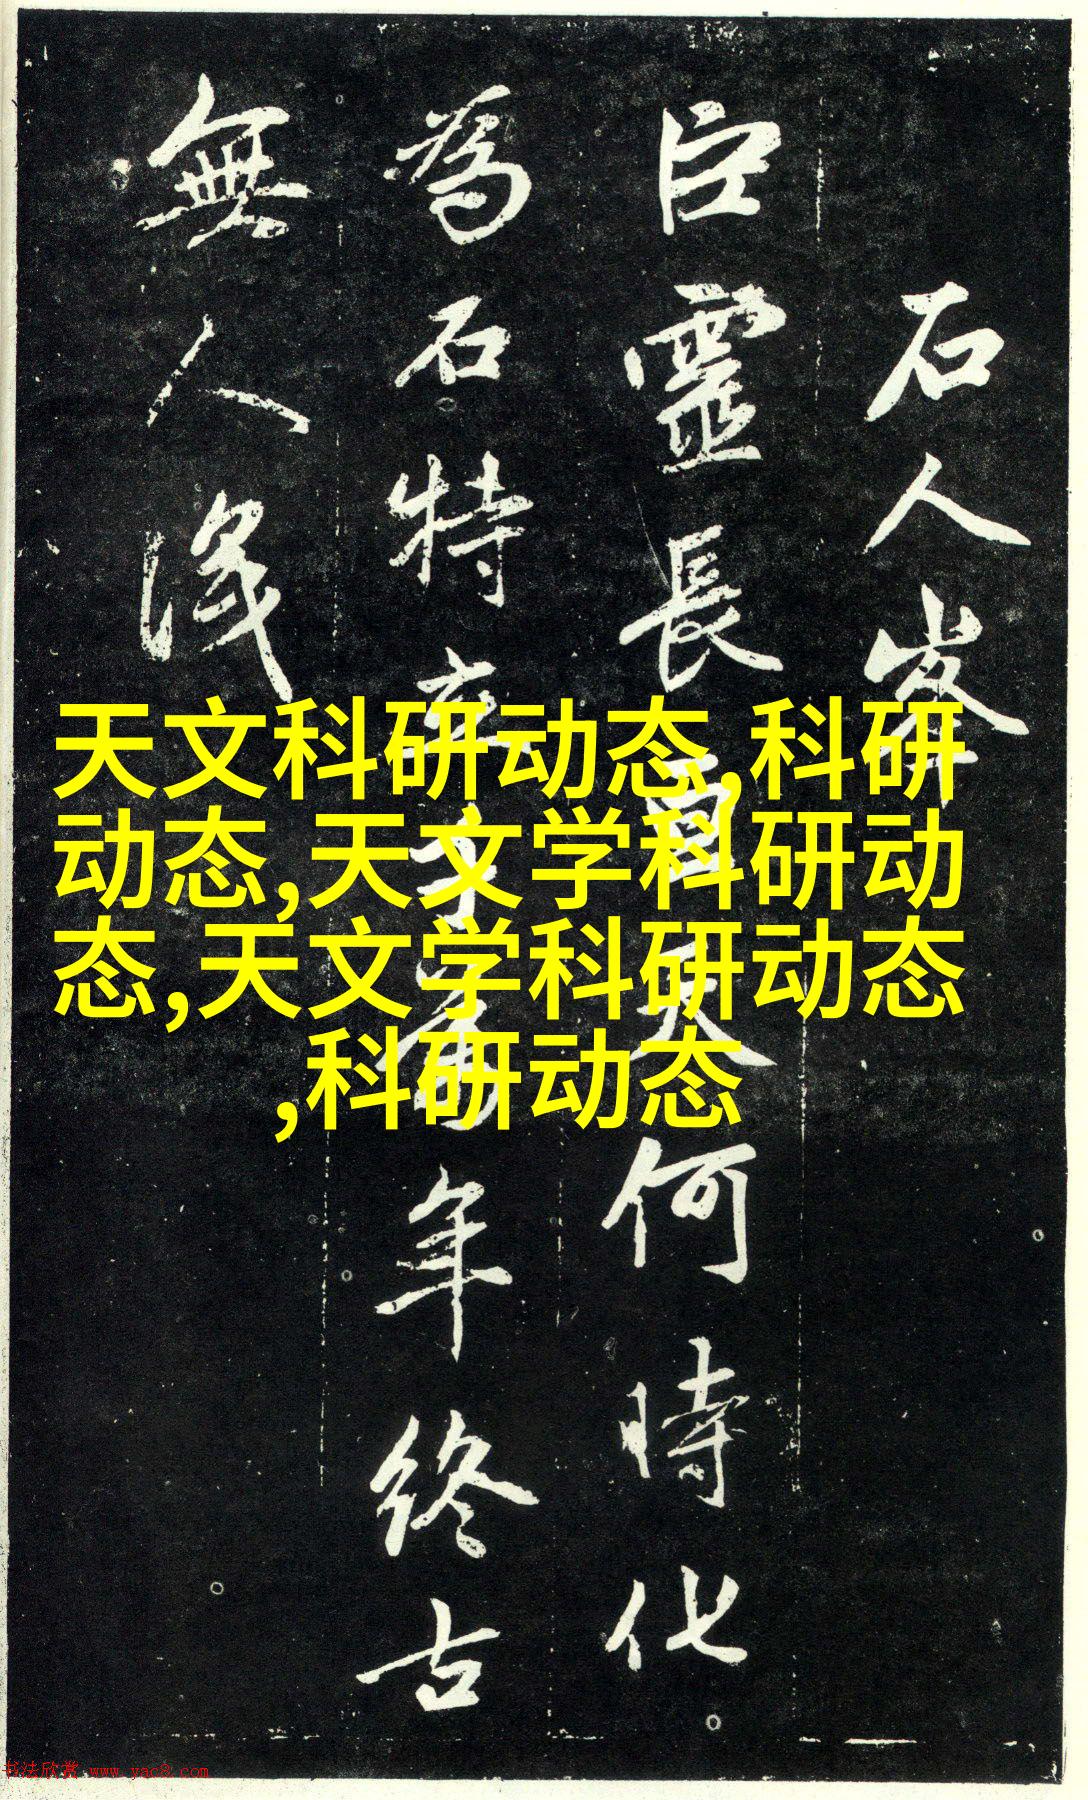 石人峯
巨靈長
何時化
為石特
年終古
無人
天文科研动态,科研
动态,天文学科研动
态,天文学科研动态
,科研动态
书法欣赏 www.yac8.com